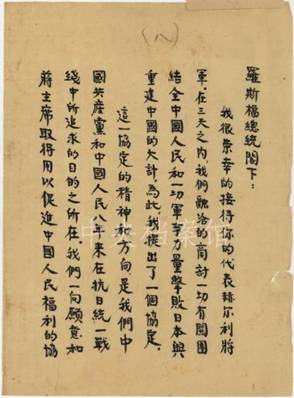 (八)
羅斯福總統閣下：
我很榮幸的接待你的代表赫尔利將
軍。在三天之内，我們融洽的商討一切有関團
結全中國人民和一切軍事力量擊敗日本與
重建中國的大計。為此，我提出了一個協定。
這一協定的精神和方向，是我們中
國共産黨和中國人民八年来在抗日統一戰
綫中所追求的目的之所在。我們一向願意和
蔣主席取得用以促進中國人民福利的協
中央档案馆